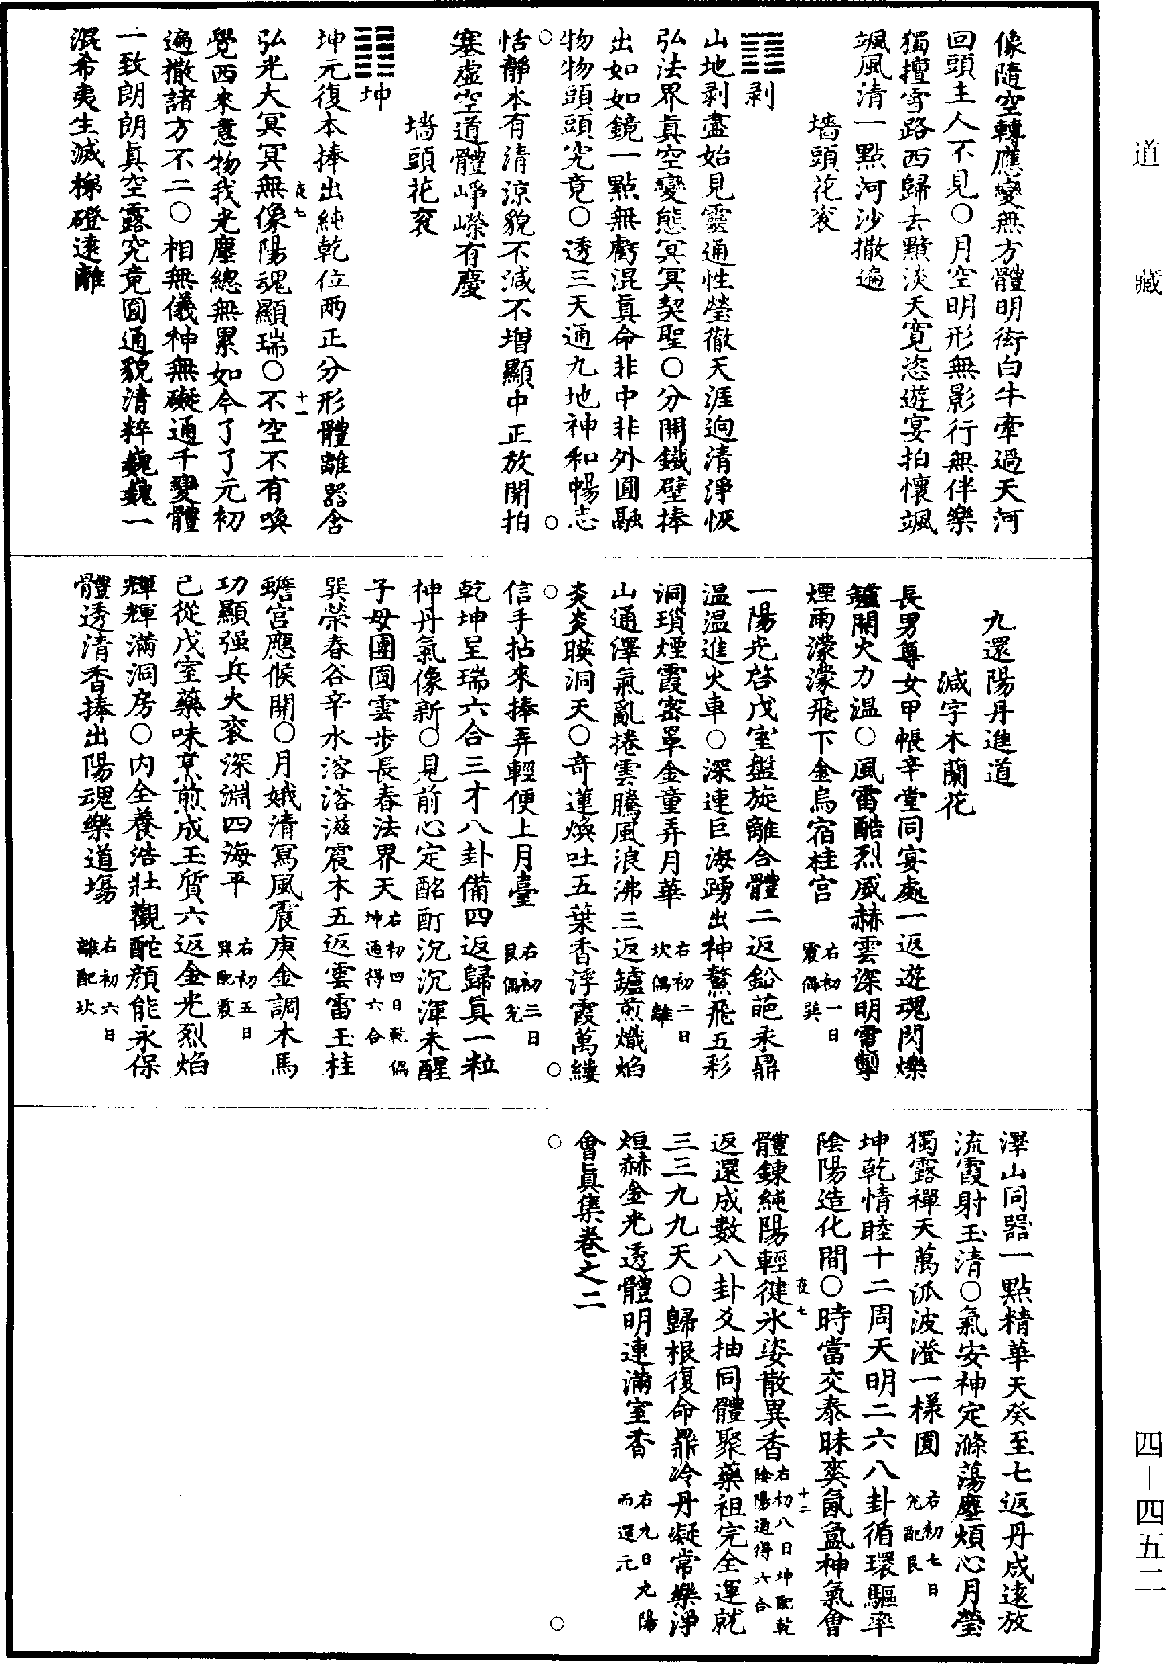 道藏
像隨空轉應變無方體明衒白牛牽過天河
回頭主人不見○月空明形無影行無伴樂
獨擅雪路西歸去黯淡天寬恣遊宴拍懷颯
颯風清一點河沙撒遍
墻頭花衮
䷖剥
山地剥盡始見靈通性瑩徹天涯逈清淨恢
弘法界真空變態冥冥契聖○分開鐵壁捧
出如如鏡一點無虧混真命非中非外圓融
物物頭頭光竟○透三天通九地神和暢志
恬靜本有清涼貌不減不增顯中正放開拍
塞虛空道體崢嶸有慶
墻頭花衮
䷁坤
坤元復本捧出純乾位兩正分形體離器舍
弘光大冥冥無像陽魂顯瑞○不空不有喚
覺西來意物我光塵總無累如今了了元初
遍撒諸方不二○相無儀神無礙通千變體
一致朗朗真空露究竟圓通貌清粹巍巍一
混希夷生滅梯磴遠離
夜七
十一
九還陽丹進道
減字木蘭花
長男尊女甲帳辛堂同宴處一返遊魂閃爍
鑪開火力溫○風雷酷烈威赫雲深明電掣
煙雨濛濛飛下金烏宿桂宫 右初一日震偶巽
一陽光啓戊室盤旋離合體二返鉛葩汞鼎
溫溫進火車○深連巨海踴出神鰲飛五彩
洞瑣煙霞密罩金童弄月華 右初二日坎偶離
山通澤氣亂捲雲騰風浪沸三返鑪煎熾焰
炎炎暎洞天○奇蓮煥吐五葉香浮霞萬縷
信手拈來捧弄輕便上月臺 右初三日艮偶兌
乾坤呈瑞六合三才八卦備四返歸真一粒
神丹氣像新○見前心定酩酊沉沉渾未醒
子母團圓雲步長春法界天 右初四日乾偶坤通得六合
巽榮春谷辛水溶溶滋震木五返雲雷玉桂
蟾宫應候開○月娥清寫風震庚金調木馬
功顯强兵火衮深淵四海平 右初五日巽配震
己從戊室藥味烹煎成玉質六返金光烈焰
輝輝滿洞房○内全養浩壯觀酡顔能永保
體透清香捧出陽魂樂道塲 右初六日離配坎
澤山同器一點精華天癸至七返丹成遠放
流霞射玉清○氣安神定滌蕩塵煩心月瑩
獨露禪天萬派波澄一樣圓 右初七日兌配艮
坤乾情睦十二周天明二六八卦循環驅率
陰陽造化間○時當交泰昧奭氤氳神氣會
體鍊純陽輕徤氷姿散異香 右初八日坤配乾陰陽通得六合
返還成數八卦爻抽同體聚藥祖完全運就
三三九九天○歸根復命鼎冷丹凝常樂淨
烜赫金光透體明連滿室香 右九日九陽而還元
夜七
十二
會真集卷之二
四—四五二